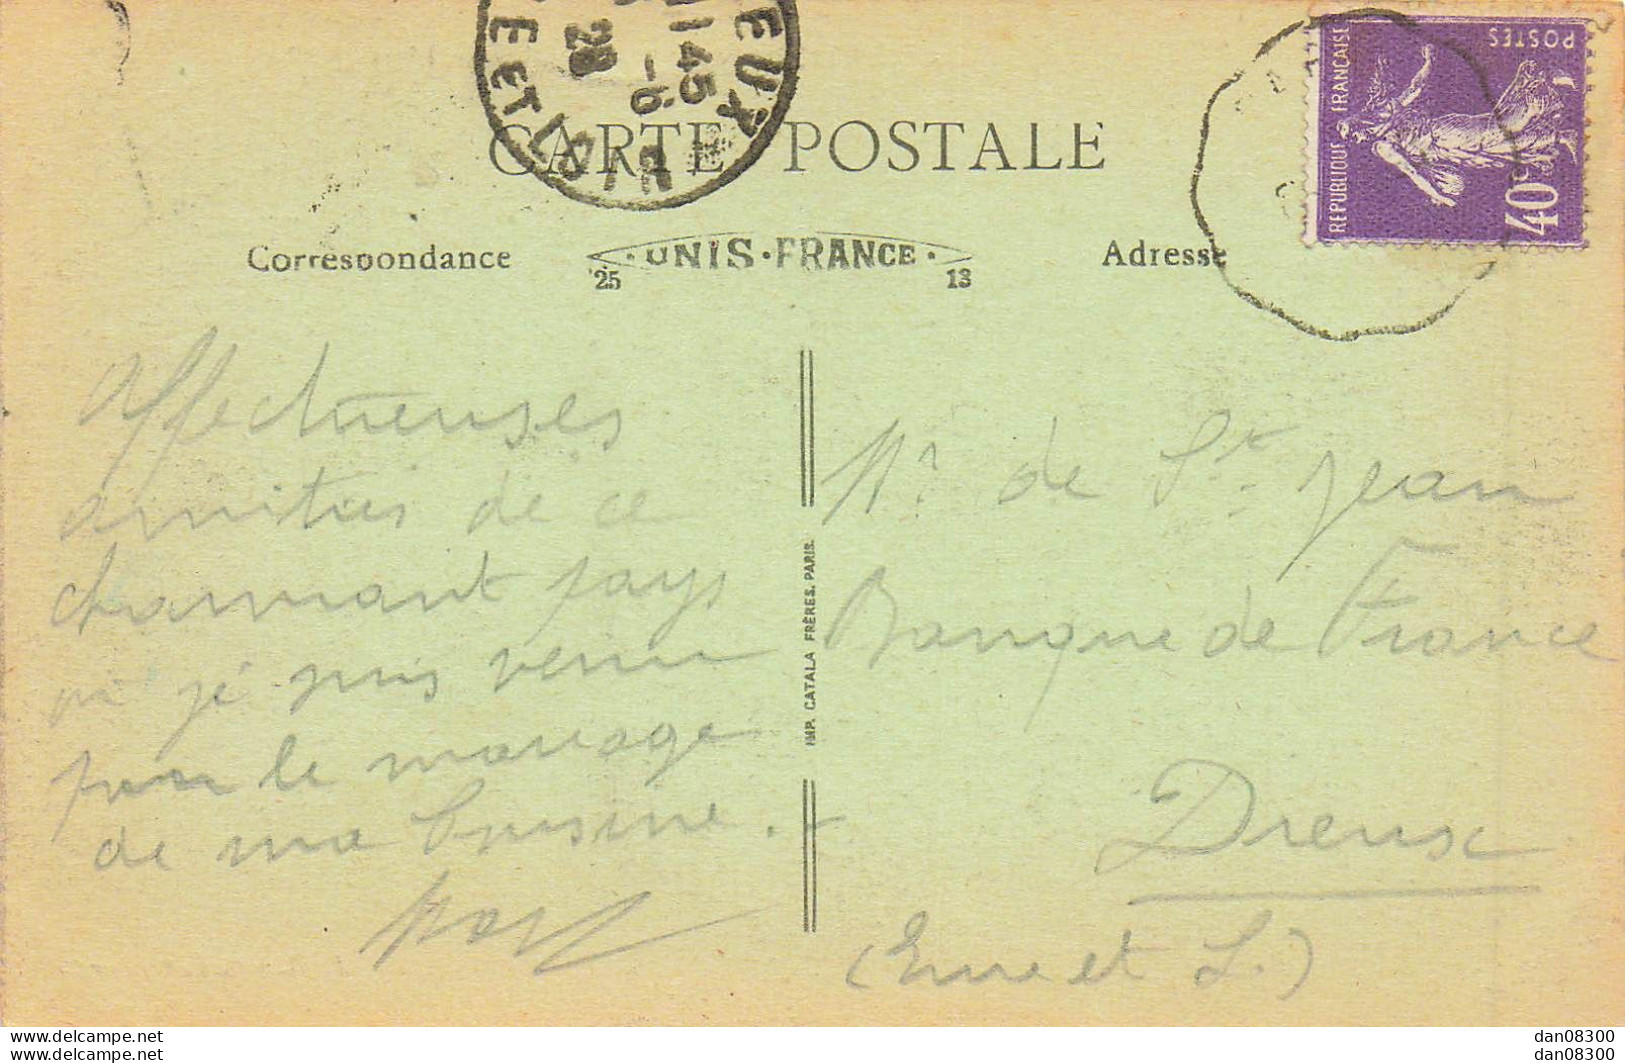 EUX
11 45
-6
28
E ET LOIR
CARTE POSTALE
REPUBLIQUE FRANÇAISE
POSTES
40c
Correspondance
·UNIS·FRANCE·
25
13
Adresse
Affectueuses
amitiés de ce
charmant pays
où je suis venu
pour le mariage
de ma cousine.
Mr de St. Jean
Banque de France
Dreux
(Eure et L.)
IMP. CATALA FRÈRES. PARIS.
www.delcampe.net
www.delcampe.net
dan08300
dan08300